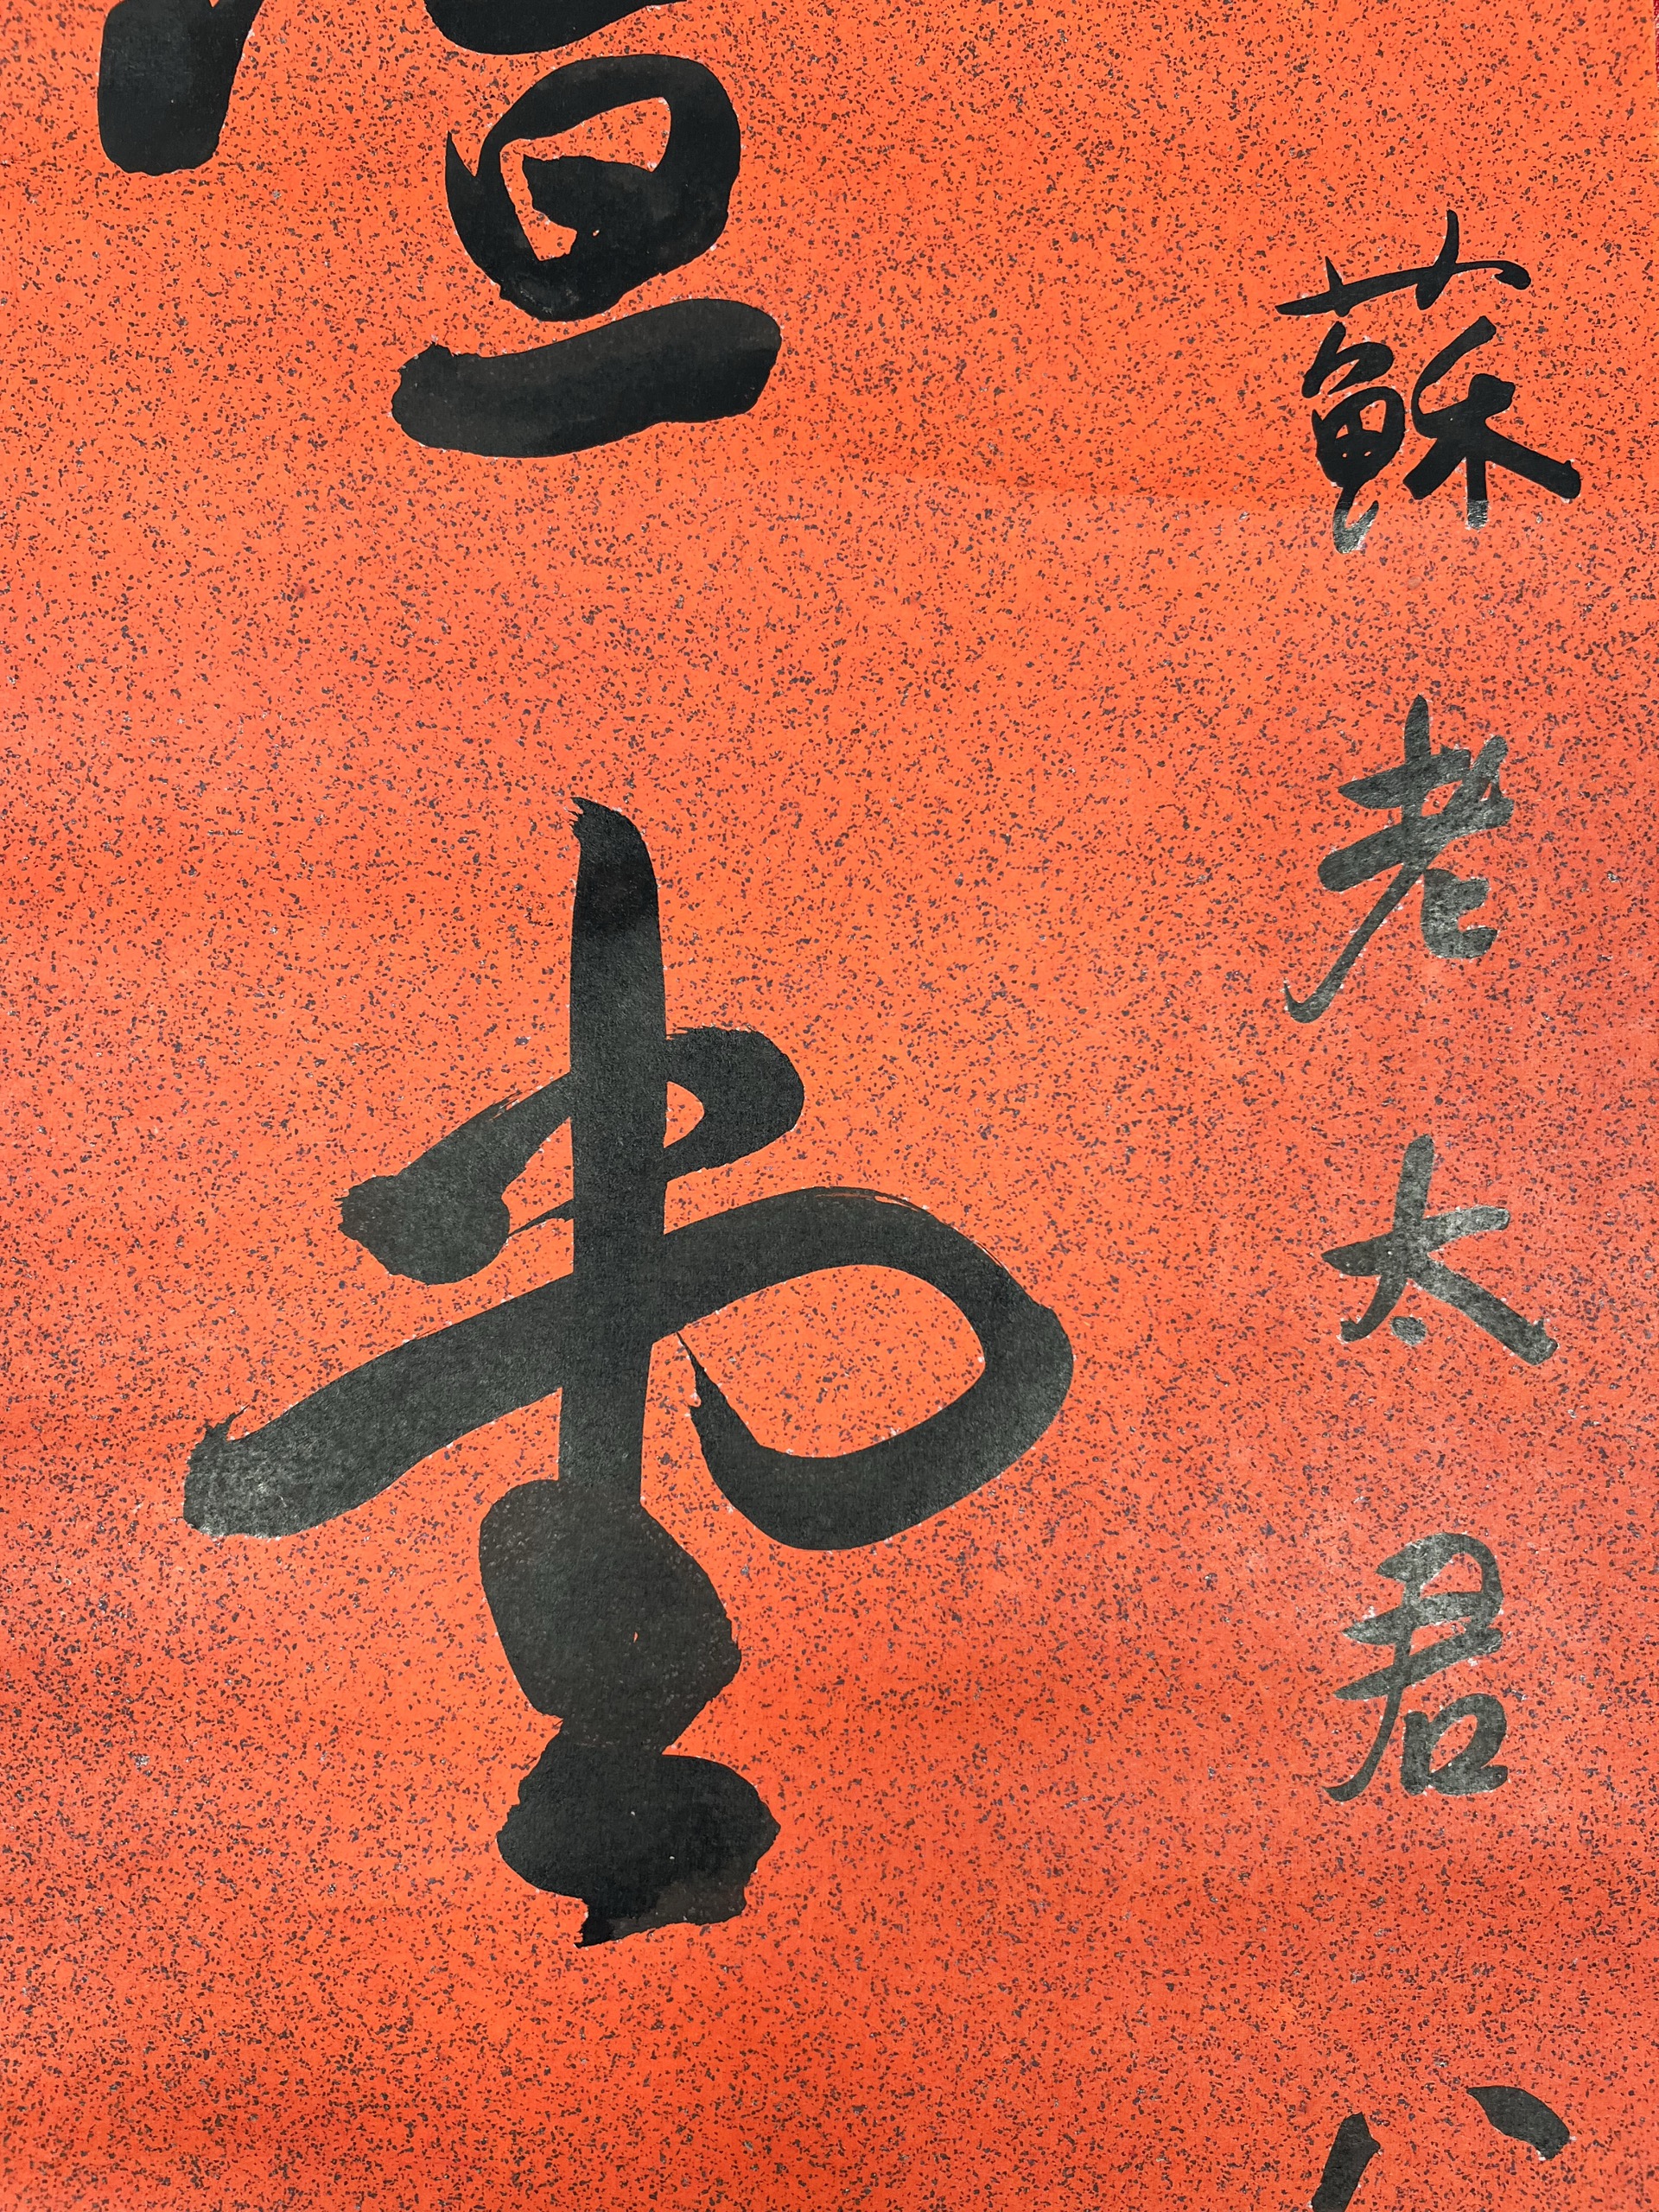 蘇老太君八
壽